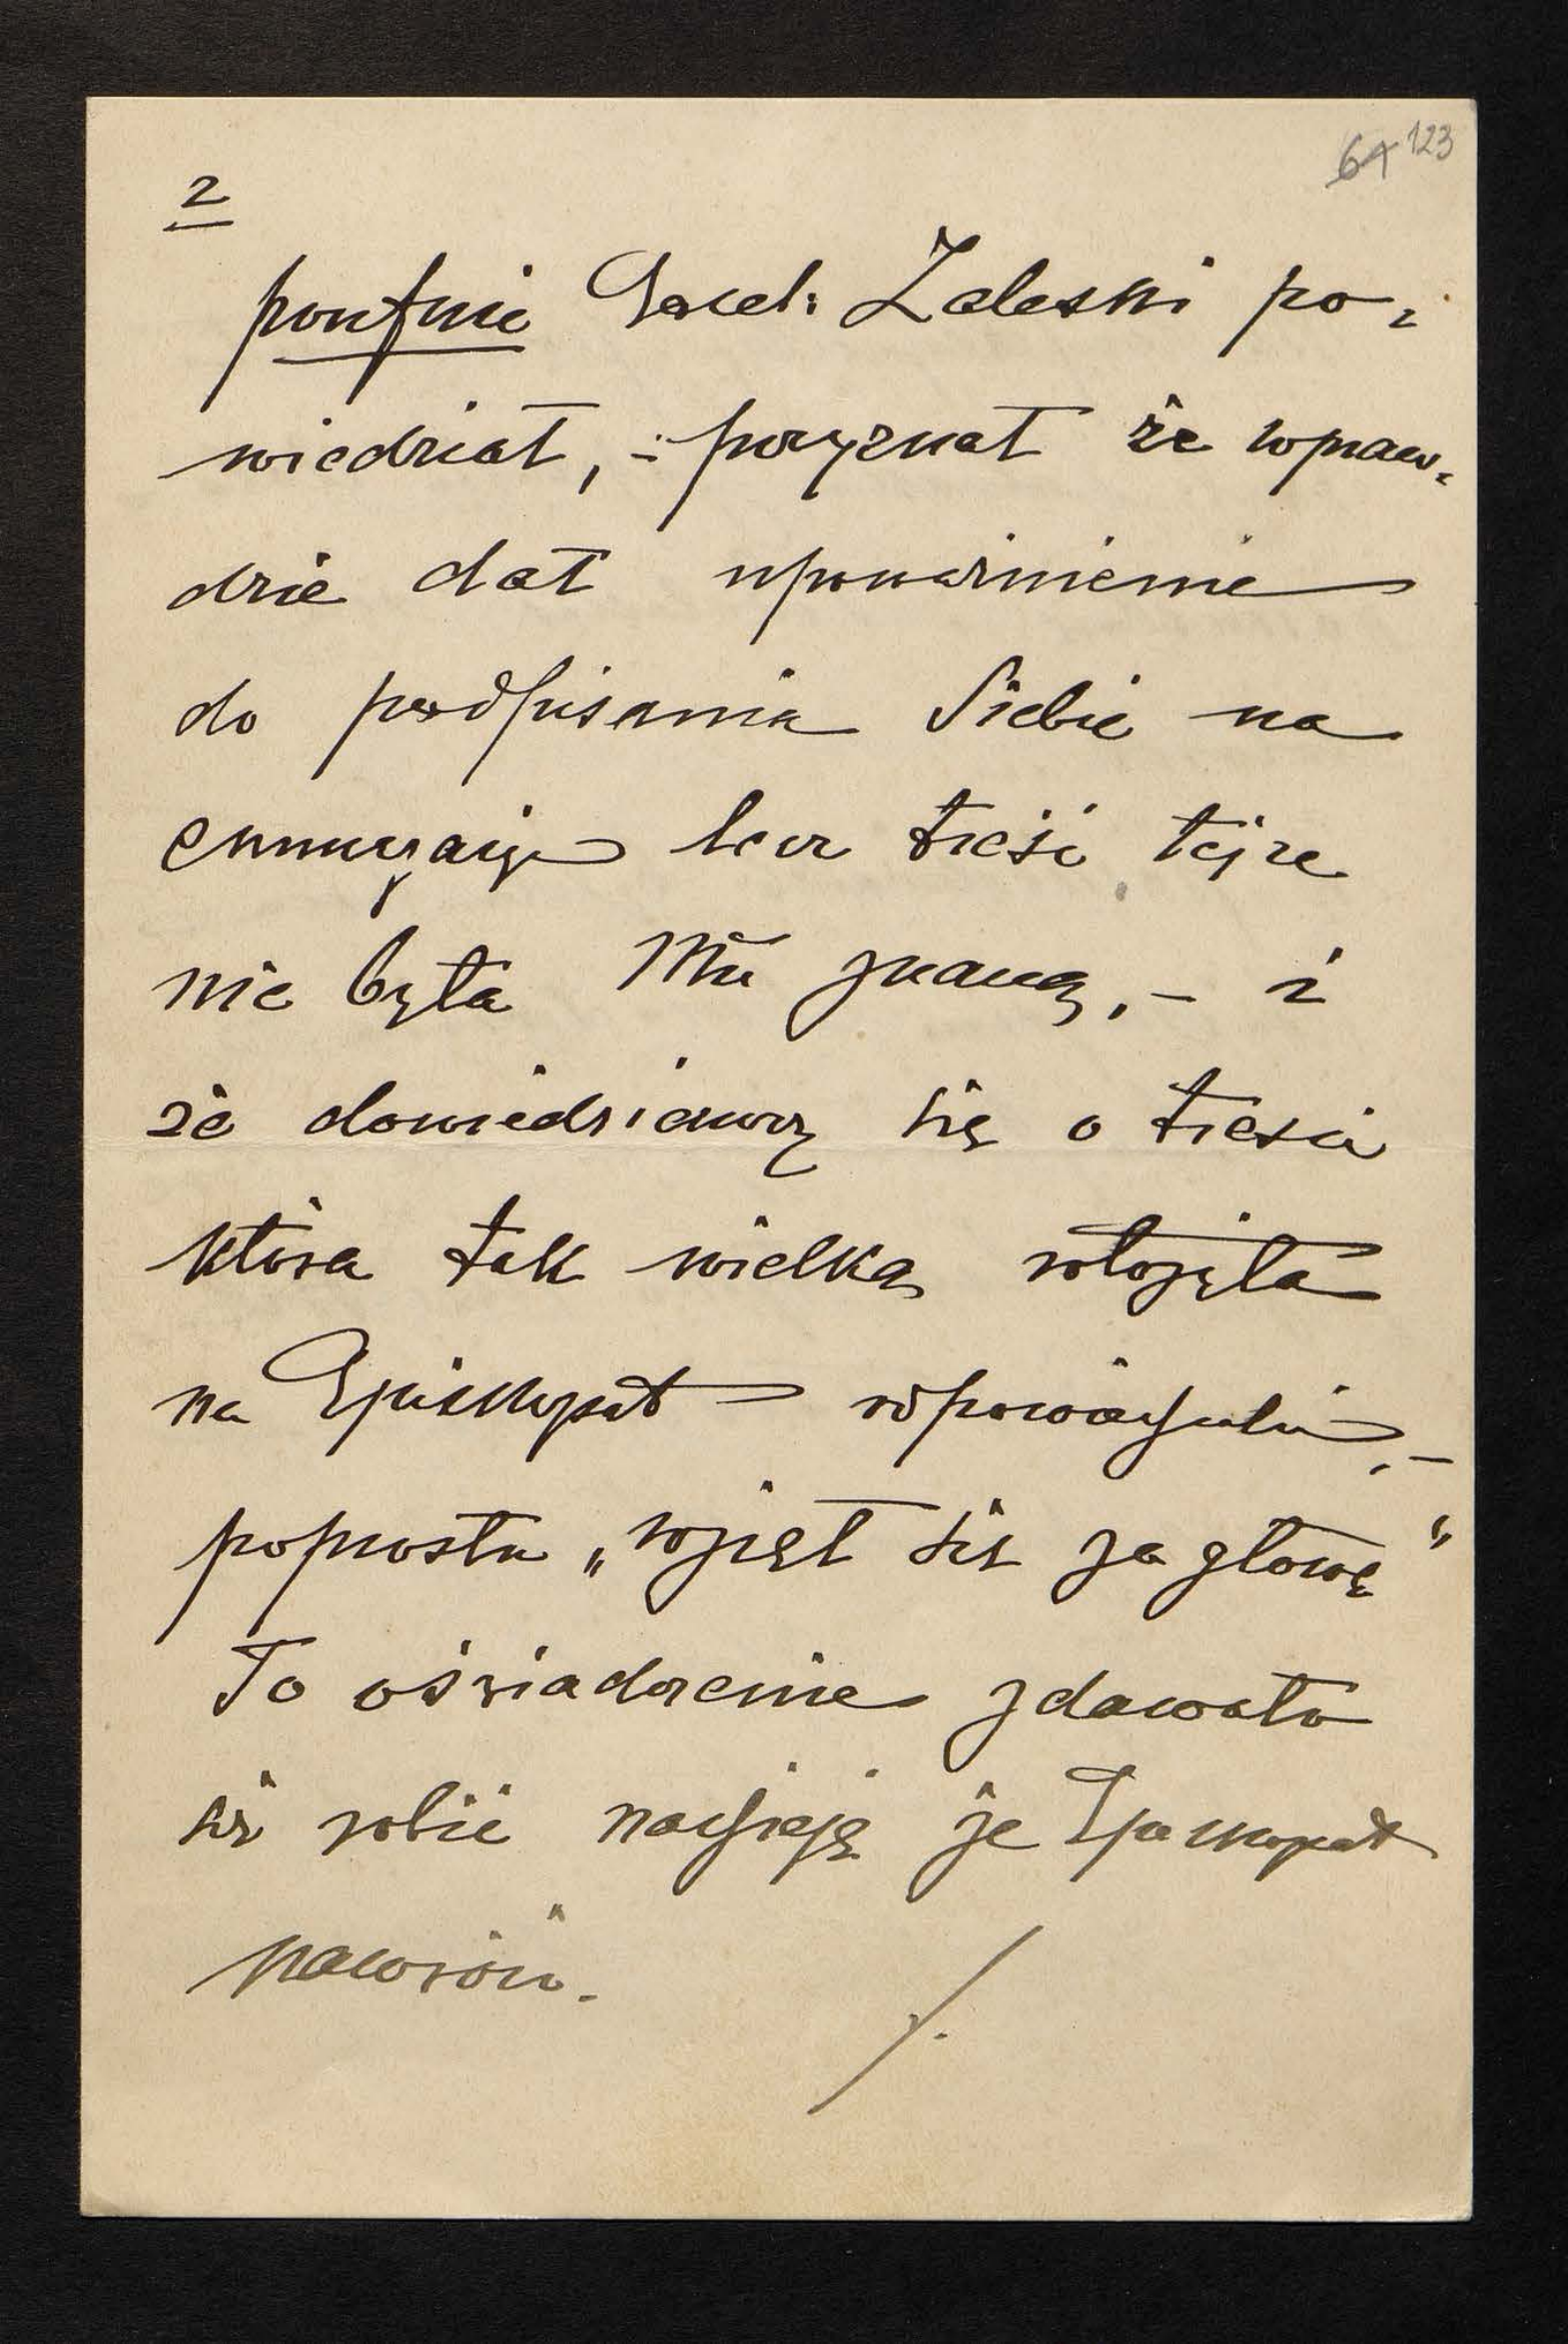 64 123
2
poufnie Excel: Zaleski po-
wiedział, i przyznał że wpraw-
dzie dał upoważnienie
do podpisania Siebie na
enuncyację lecz treść tejże
nie była Mu znaną, - i
że dowiedziawszy się o treści
która tak wielką włożyła
na Episkopat odpowiedzialność, -
poprostu „wziął się za głowę"
To oświadczenie zdawało
się robić nadzieję że Episkopat
nawróci.
./.